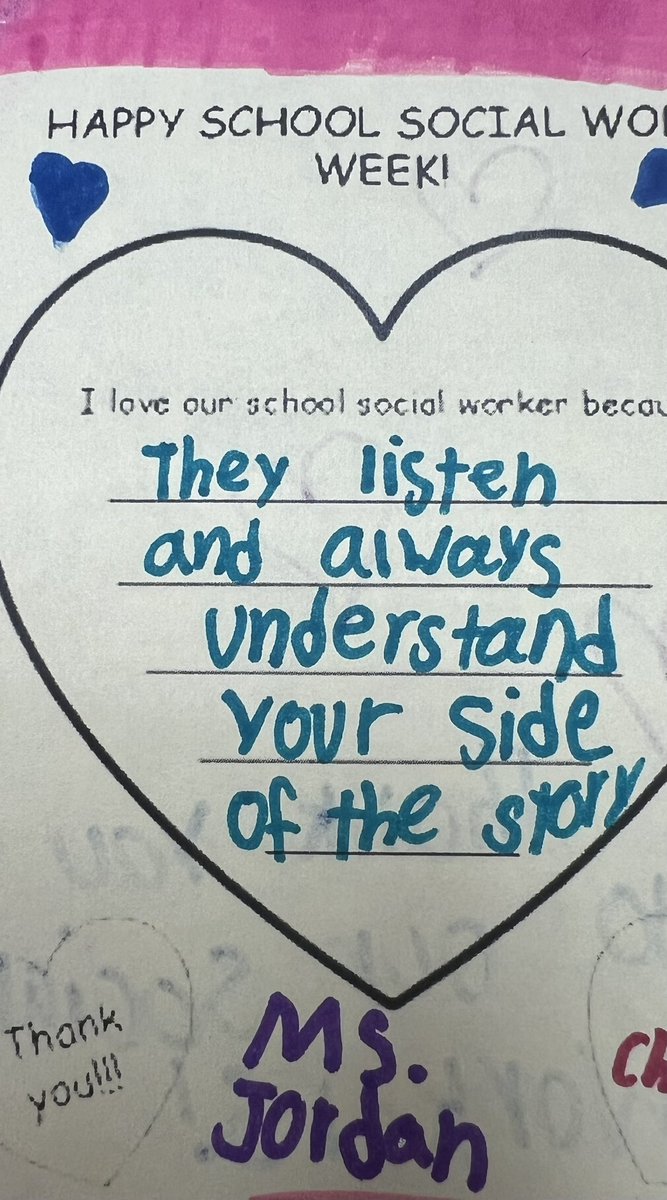 HAPPY SCHOOL SOCIAL WO
WEEK!
I love our school social worker becau
They listen
and always
understand
your side
of the story
Thank
you!!!
Ms.
Jordan